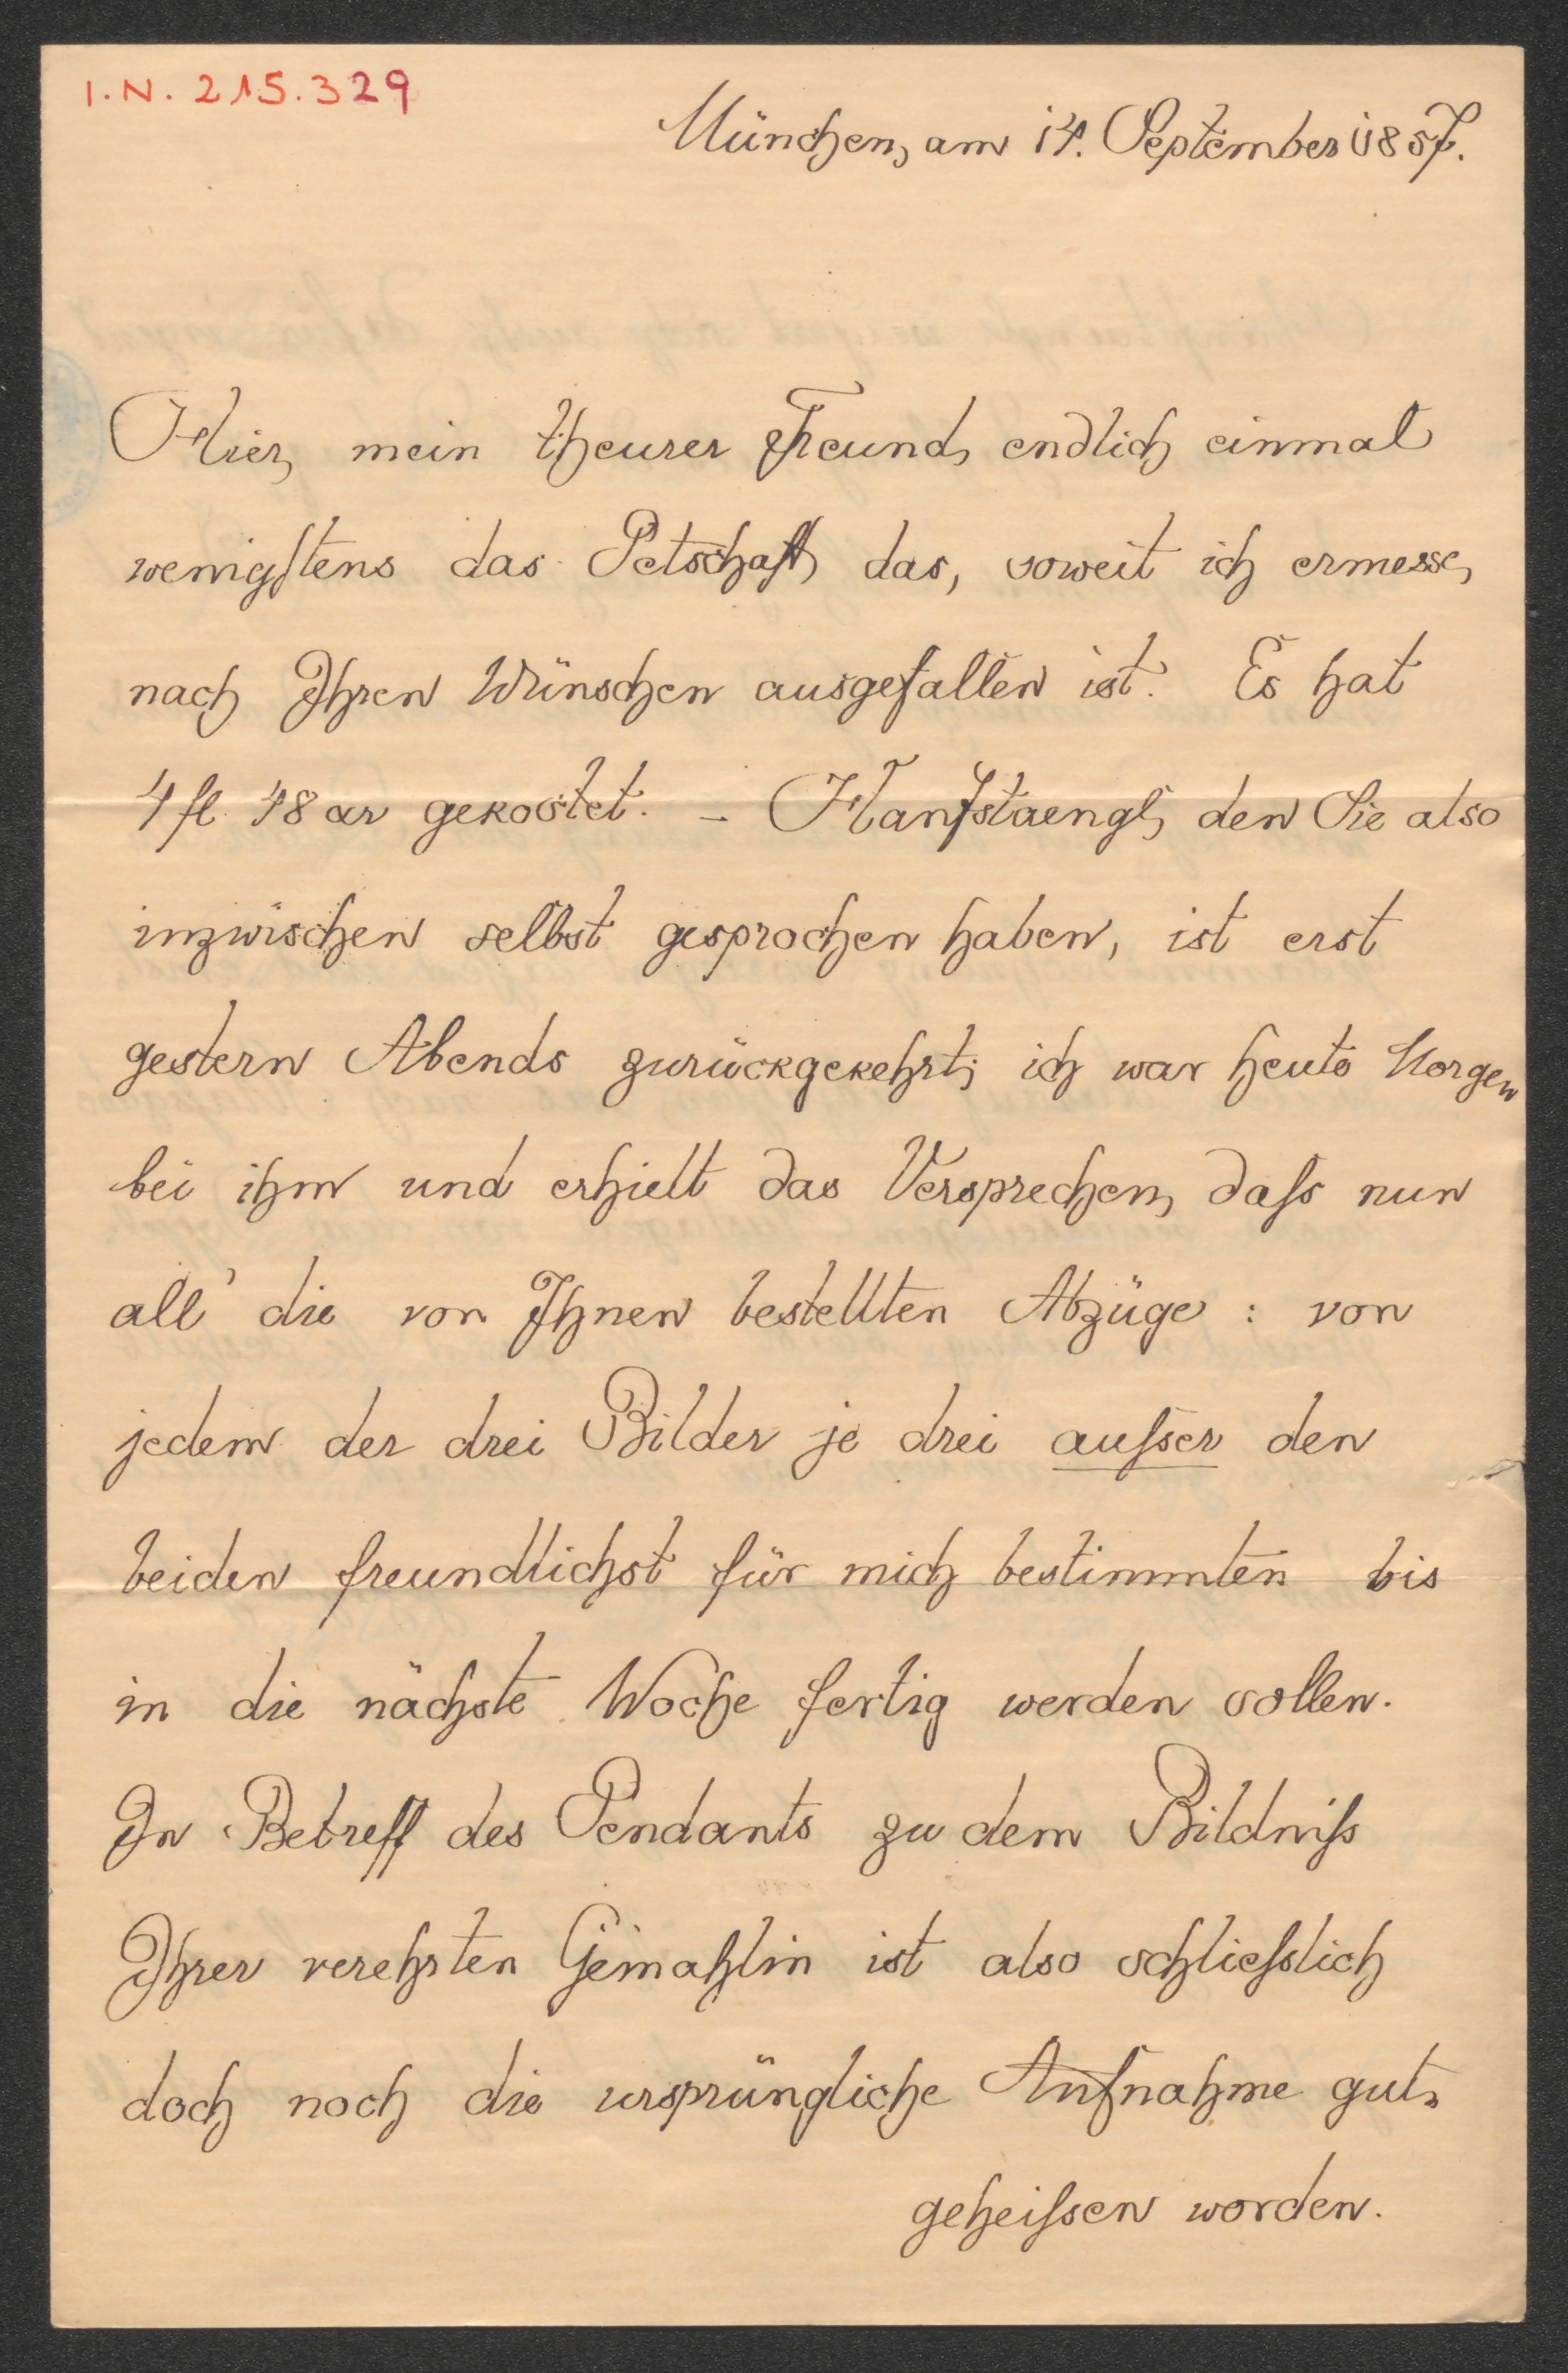 I.N. 215.329
München, am 14. September 1857.
Hier, mein theurer Freund, endlich einmal
wenigstens das Petschaft, das, soweit ich ermesse,
nach Ihren Wünschen ausgefallen ist. Es hat
4 fl 48 xr gekostet. – Hanfstaengl, den Sie also
inzwischen selbst gesprochen haben, ist erst
gestern Abends zurückgekehrt; ich war heute Morgen
bei ihm und erhielt das Versprechen, daſs nun
all' die von Ihnen bestellten Abzüge : von
jedem der drei Bilder je drei auſser den
beiden freundlichst für mich bestimmten bis
in die nächste Woche fertig werden sollen.
In Betreff des Pendants zu dem Bildniſs
Ihrer verehrten Gemahlin ist also schlieſslich
doch noch die ursprüngliche Aufnahme gut-
geheiſsen worden.